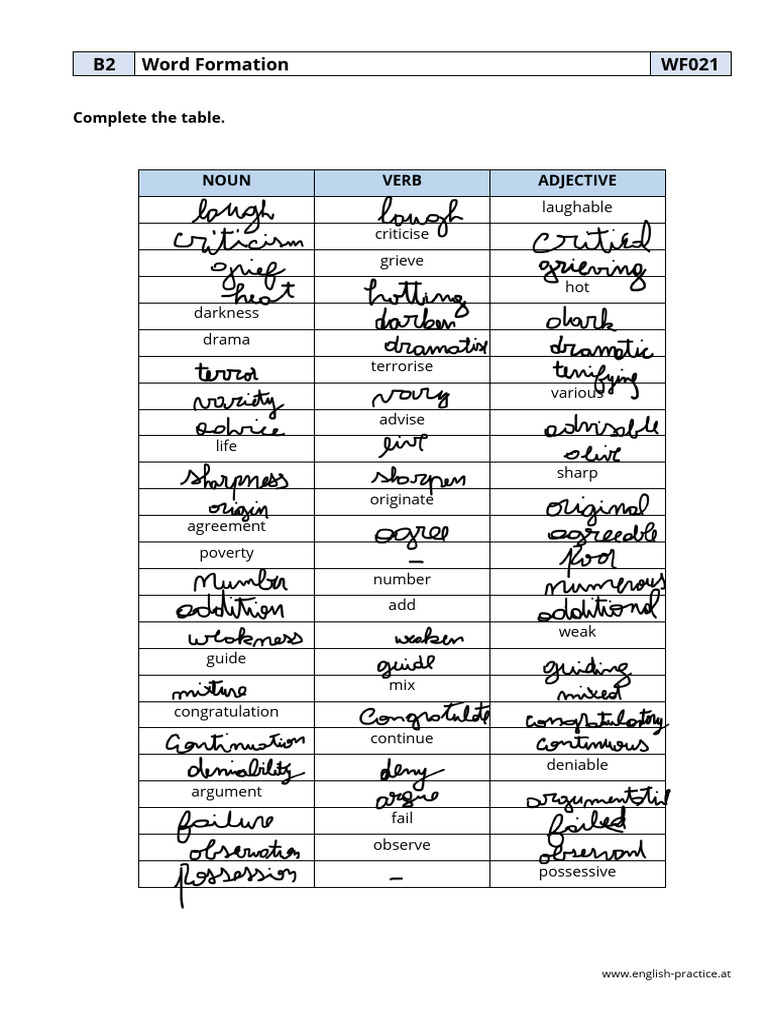 B2 Word Formation WF021
Complete the table.
NOUN VERB ADJECTIVE
laugh laugh laughable
criticism criticise critical
grief grieve grieving
heat hotting hot
darkness darken dark
drama dramatise dramatic
terror terrorise terrifying
variety vary various
advice advise advisable
life live alive
sharpness sharpen sharp
origin originate original
agreement agree agreeable
poverty – poor
Number number numerous
addition add additional
weakness weaken weak
guide guide guiding
mixture mix mixed
congratulation Congratulate congratulatory
Continuation continue continuous
deniability deny deniable
argument argue argumentative
failure fail failed
observation observe observant
Possession – possessive
www.english-practice.at